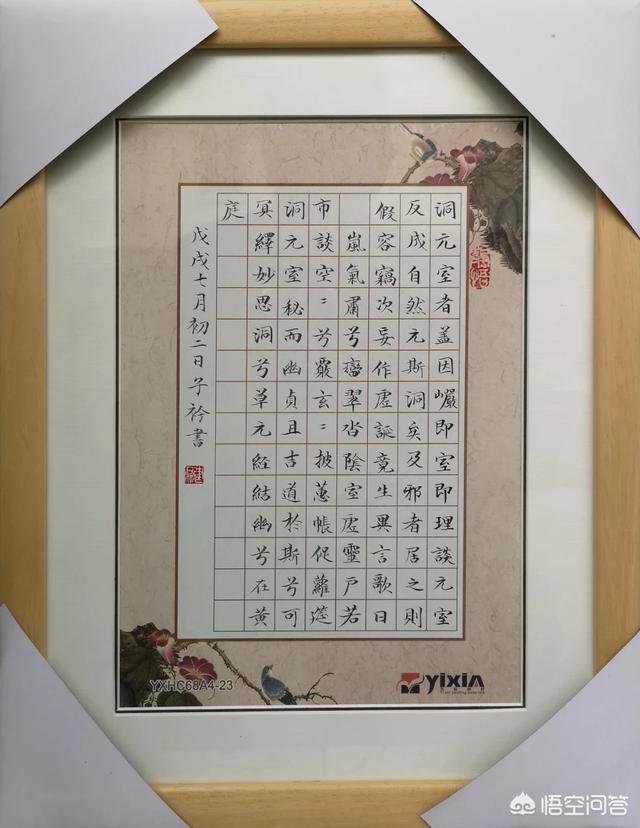 洞元室者盖因巗即室即理談元室
反成自然元斯洞矣及邪者居之則
假容竊次妄作虛誕竟生異言歌曰
嵐氣肅兮巒翠沓陰室虛靈戶若
市談空〻兮覈玄〻披蕙帳促蘿筵
洞元室秘而幽貞且吉道於斯兮可
冥繹妙思洞兮草元經結幽兮在黃
庭
戊戌七月初二日子衿書
YXHC68A4-23
yixin
悟空问答